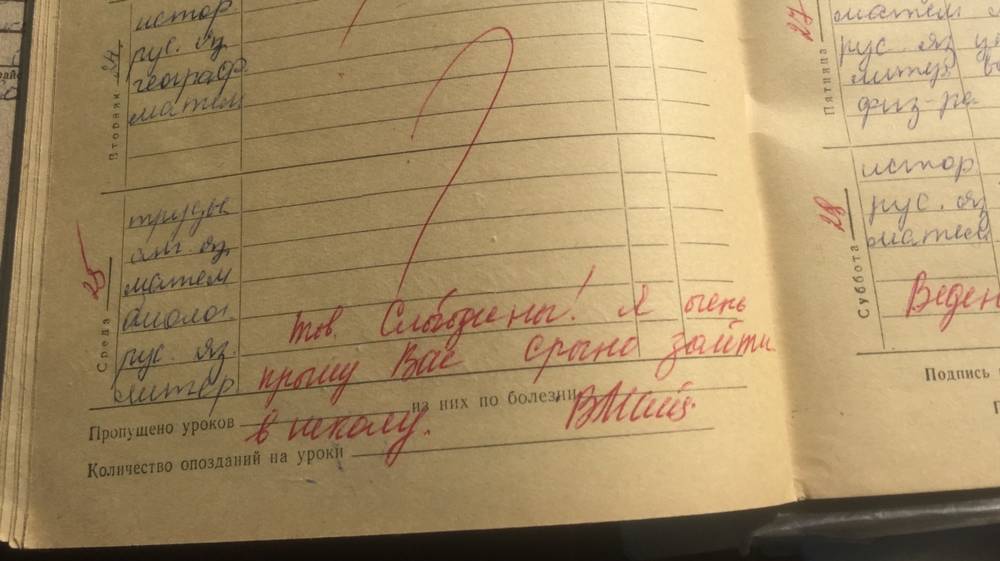 истор
рус. яз
географ.
матем
Вторник 24
труды
анг. яз
матем
биолог
рус. яз.
литер
Среда 25
Тов. Слободины! Я очень
прошу Вас срочно зайти
в школу.
Пропущено уроков из них по болезни
Количество опозданий на уроки
матем
рус. яз
литер
физ-ра
Пятница 27
истор
рус. яз
матем
Суббота 28
Веден
Подпись